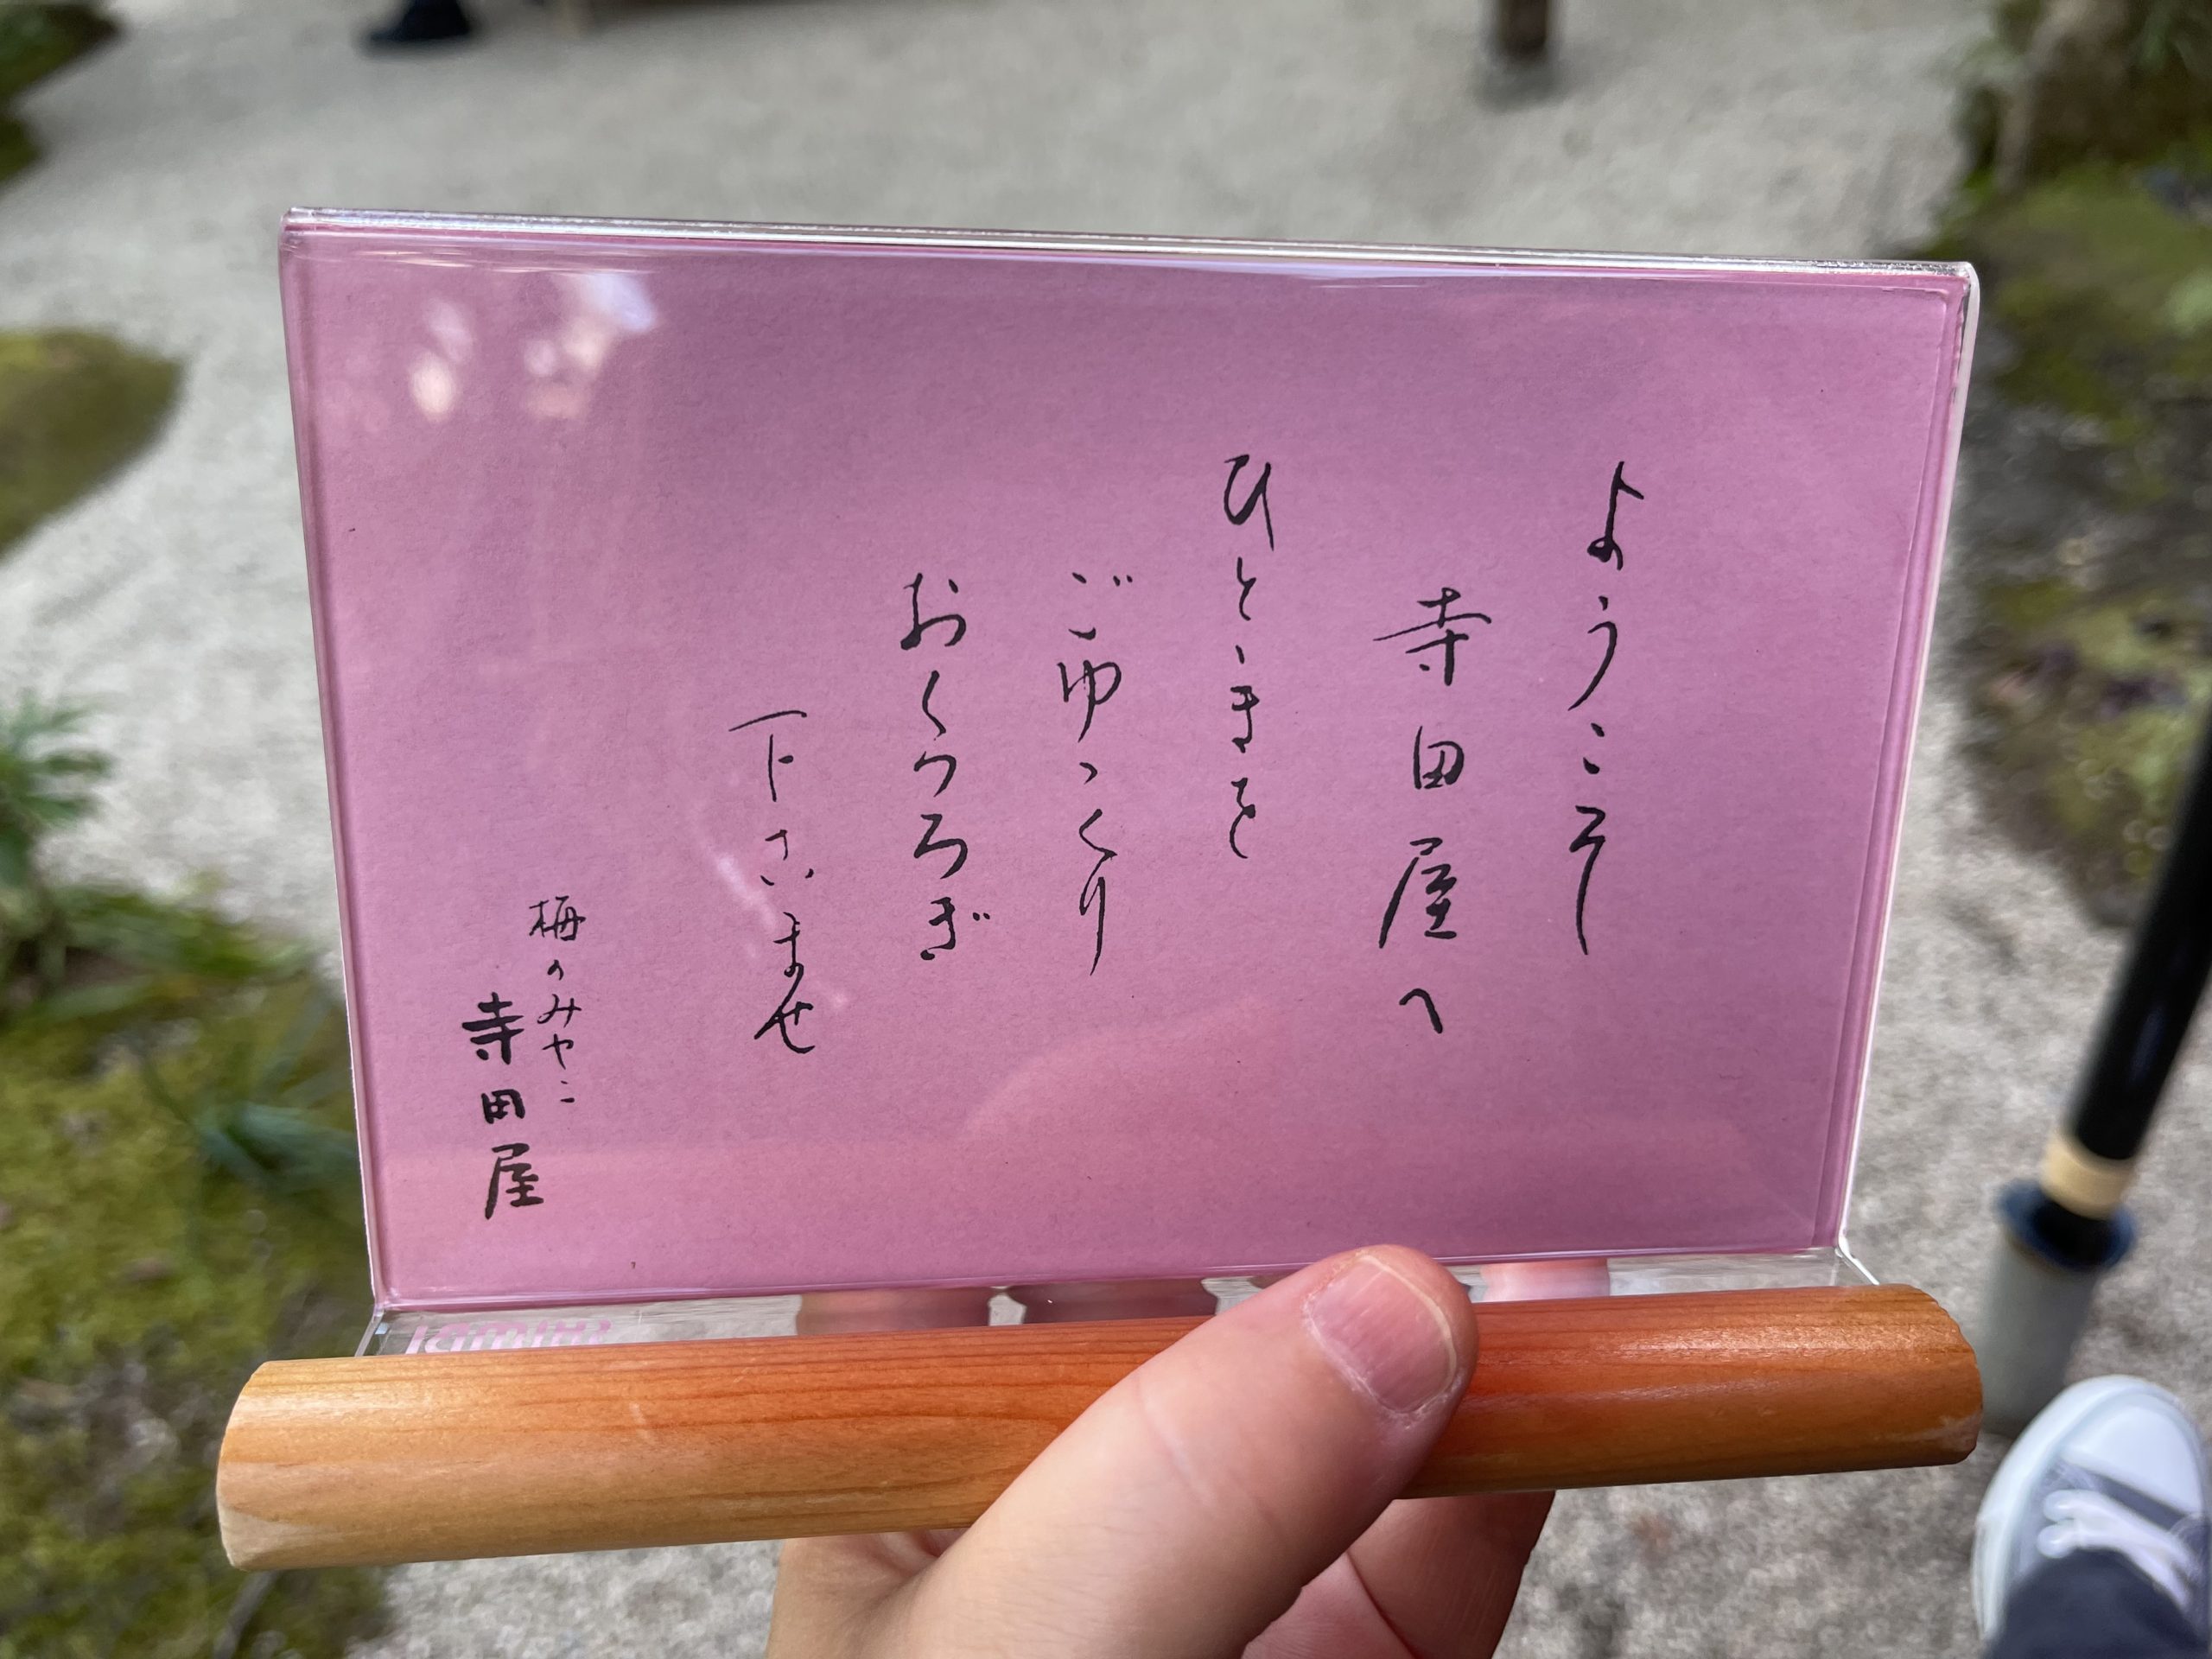 ようこそ
寺田屋へ
ひとときを
ごゆっくり
おくつろぎ
下さいませ
梅のみやこ
寺田屋